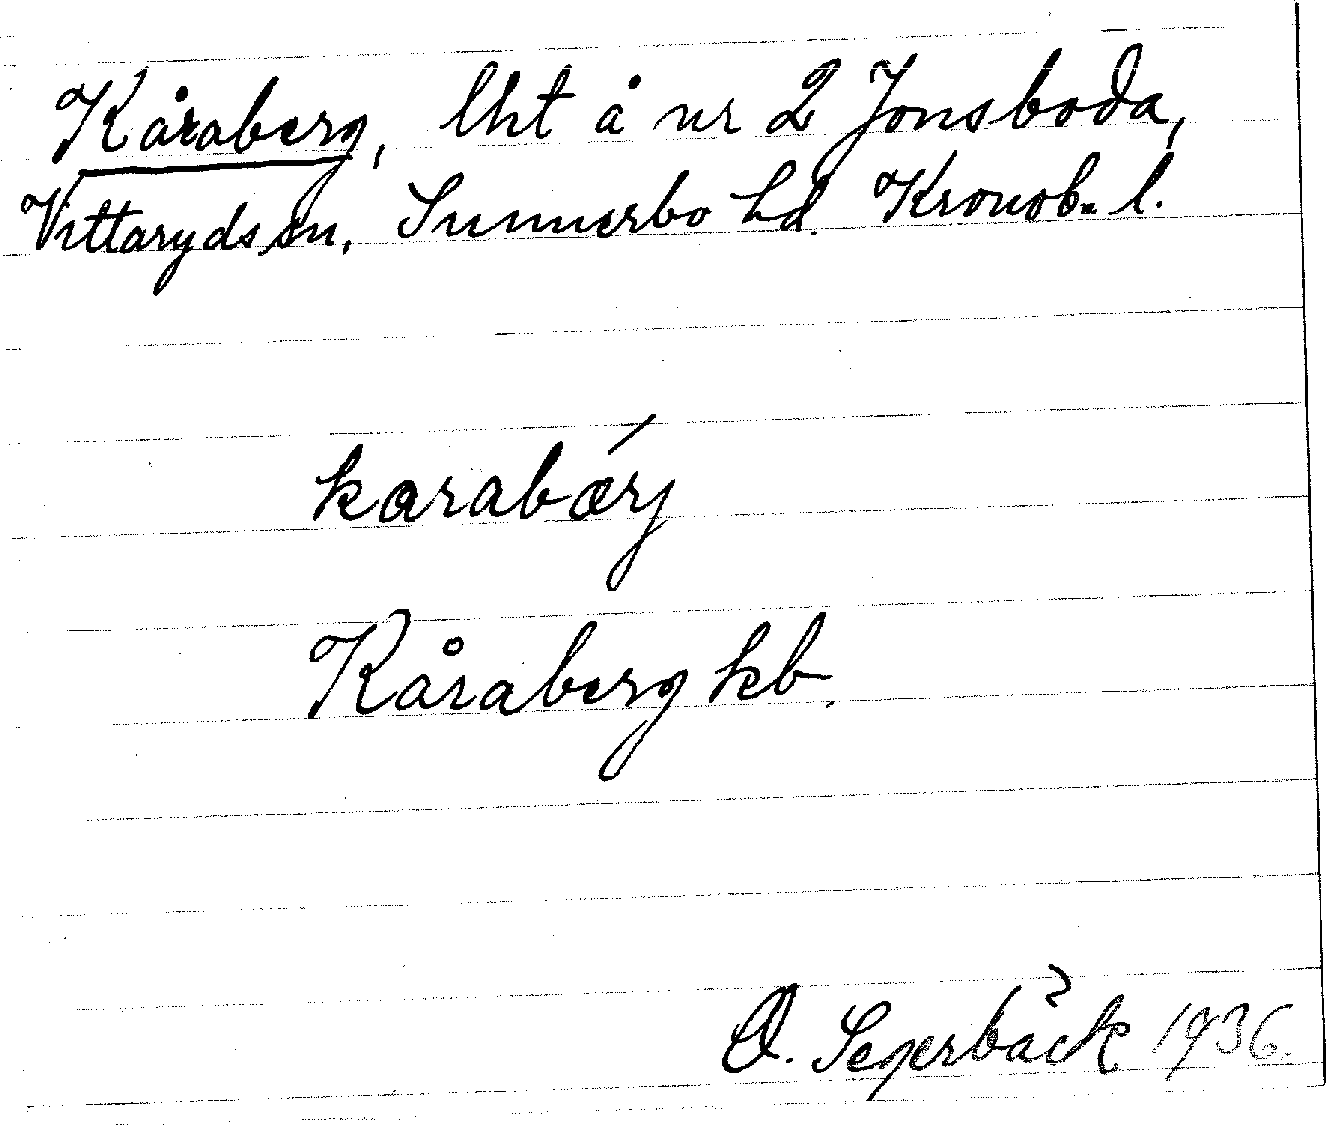 Kåraberg, lht å nr 2 Jonsboda,
Vittaryds sn, Sunnerbo hd. Kronob. l.
karabǽrj
Kåraberg kb.
O. Segerbäck 1936.